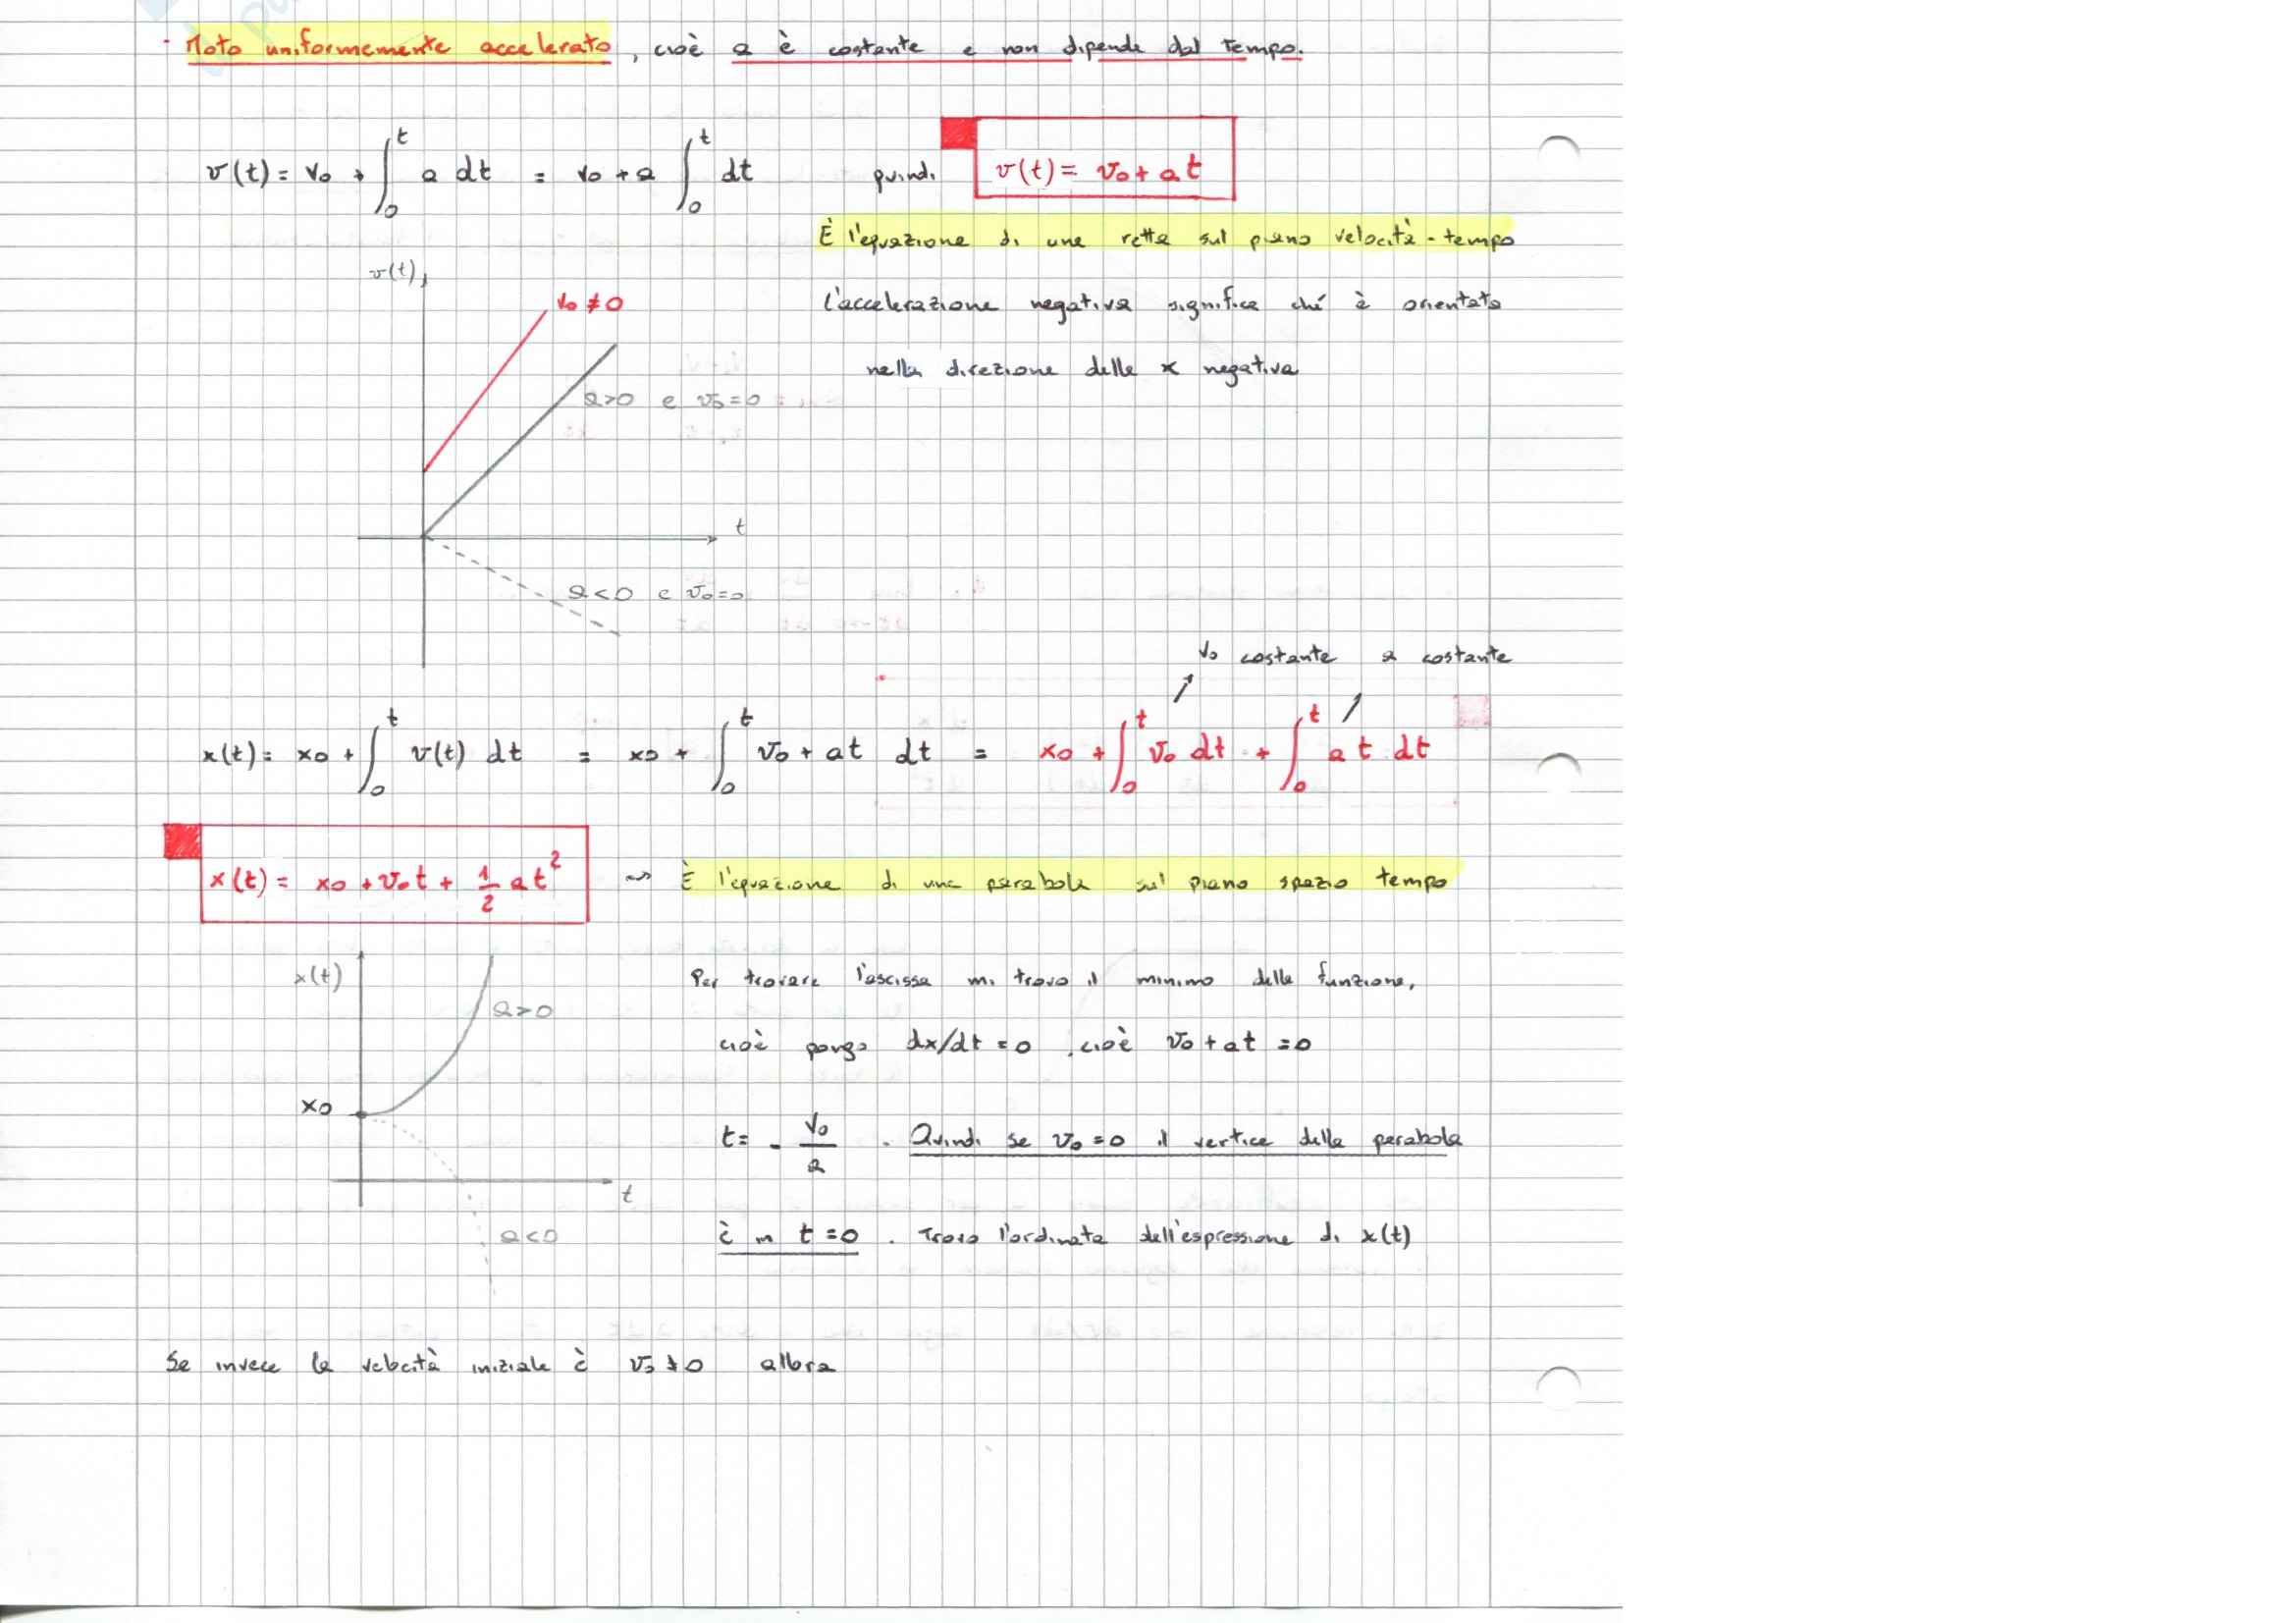 · Moto uniformemente accelerato, cioè a è costante e non dipende dal tempo.
v(t) = v0 + ∫₀ᵗ a dt = v0 + a ∫₀ᵗ dt quindi v(t) = v0 + at
È l'equazione di una retta sul piano velocità - tempo
v(t)
v0 ≠ 0
l'accelerazione negativa significa ché è orientata
nella direzione delle x negativa
a>0 e v0=0
t
a<0 e v0=0
v0 costante a costante
x(t) = x0 + ∫₀ᵗ v(t) dt = x0 + ∫₀ᵗ v0 + at dt = x0 + ∫₀ᵗ v0 dt + ∫₀ᵗ a t dt
x(t) = x0 + v0t + 1/2 at² ⇝ È l'equazione di una parabola sul piano spazio tempo
x(t)
Per trovare l'ascissa mi trovo il minimo della funzione,
a>0
cioè pongo dx/dt = 0, cioè v0 + at = 0
x0
t = - v0/a . Quindi se v0 = 0 il vertice della parabola
t
è in t = 0 . Trovo l'ordinata dell'espressione di x(t)
a<0
Se invece la velocità iniziale è v0 ≠ 0 allora